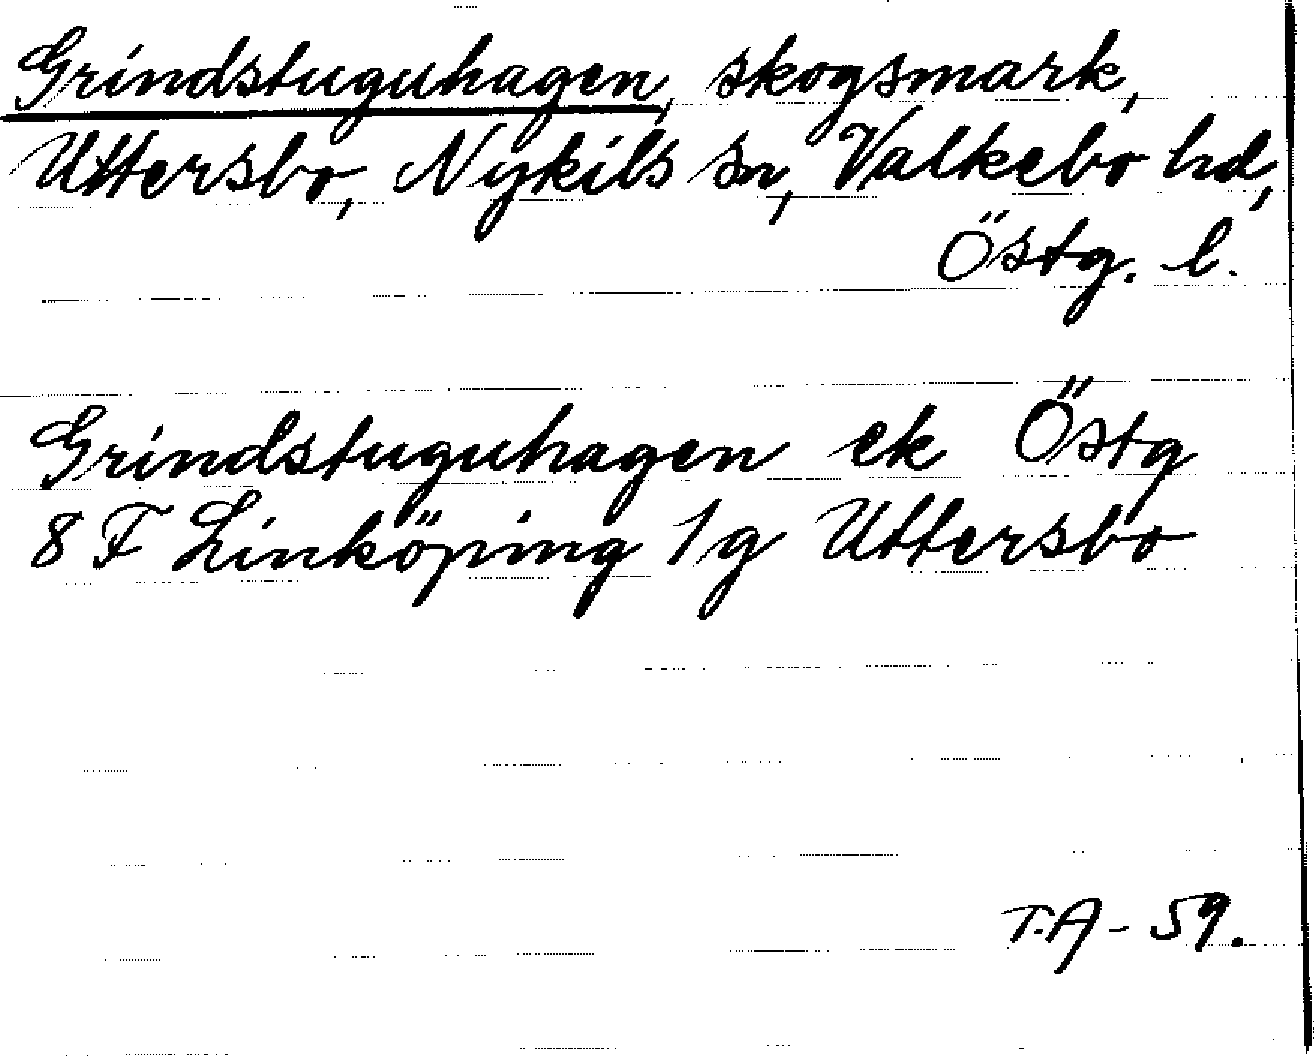 Grindstuguhagen, skogsmark,
Uttersbo, Nykils sn, Valkebo hd,
Östg. l.
Grindstuguhagen ek Östg
8 F Linköping 1g Uttersbo
T.A - 59.